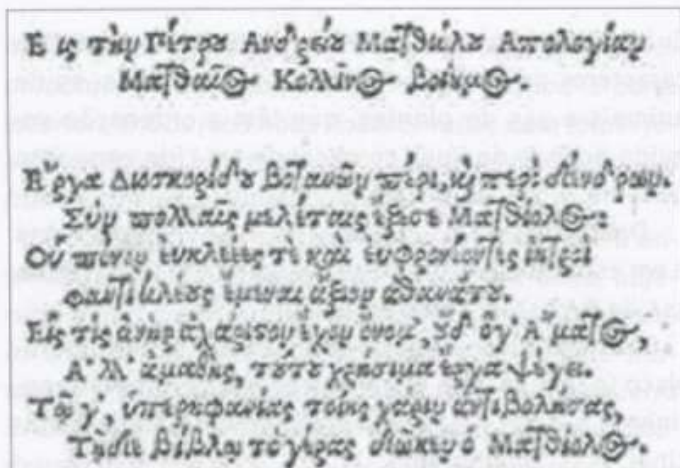 Εἰς τὴν Πέτρου Ἀνδρέου Ματθιόλου Ἀπολογίαν
Ματθαῖος Κολλῖνος βοίεμος.
Ἔργα Διοσκορίδου βοτανῶν πέρι, καὶ περὶ δένδρων.
Σὺν πολλαῖς μελέταις ἔξεσε Ματθίολος:
Οὗ πόνον εὐκλέιες τὲ καὶ εὐφρονέοντες ἰητροὶ
φαντὶ κλέους ἔμεναι ἄξιον ἀθανάτου.
Εἷς τις ἀνὴρ ἀχαρίτου ἔχων ὄνομ', οὐδ' ὅγ' Ἄματος,
Ἀλλ' ἀμαθὴς, τούτου χρήσιμα ἔργα ψέγει.
Τῷ γ', ὑπερηφανίας τοίης χάριν ἀντιβολήσας,
Τῇδε βίβλῳ τὸ γέρας δῶκεν ὁ Ματθίολος.